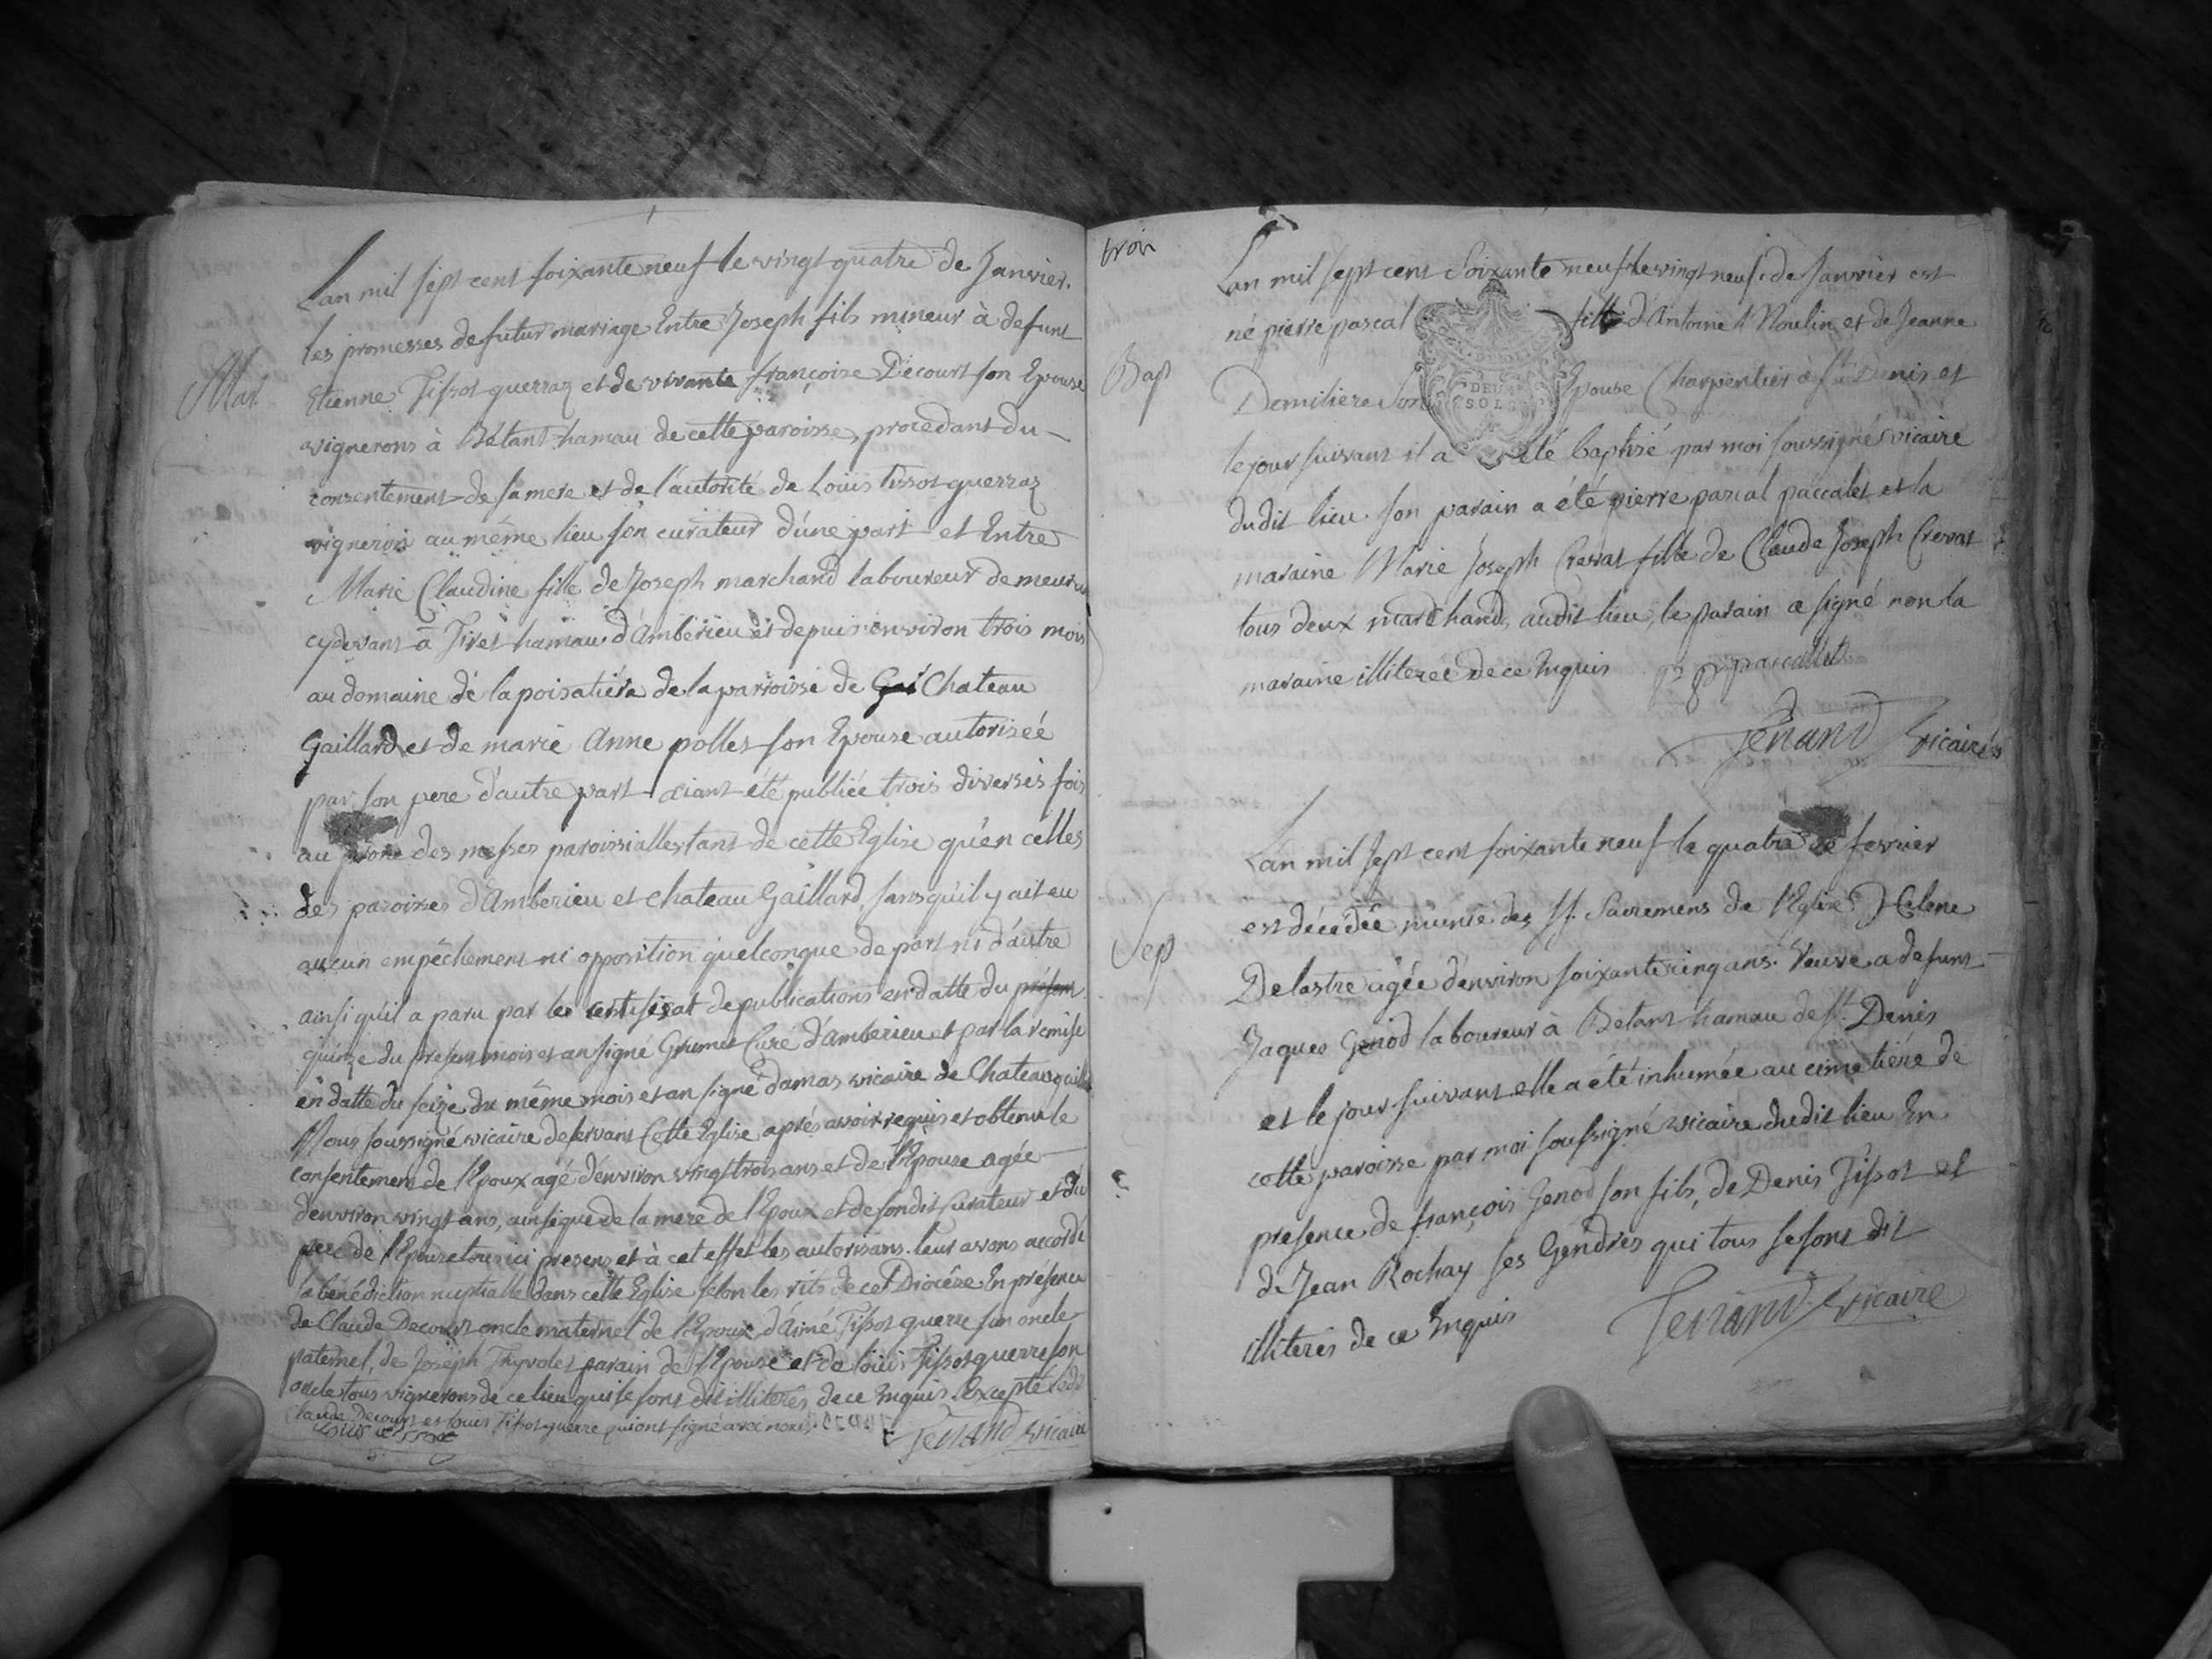 Lan mil sept cent soixante neuf le vingt quatre de Janvier.
les promesses de futur mariage Entre Joseph fils mineur à defunt
Mar.
Etienne Tissot guerraz et de vivante françoise Decourt son Epouse
vignerons à Bétant hamau de cette paroisse, procedant du
consentement de sa mere et de l'autorité de Louis tissot guerraz
vigneron au même lieu son curateur d'une part et Entre
Marie Claudine fille de Joseph marchand laboureur demeurant
cydevant à Tiret hamau d'Ambérieu et depuis environ trois mois
au domaine de la poisatiére de la parroisse de Gai Chateau
Gaillard et de marie Anne pollet son Epouse autorisée
par son pere d'autre part aiant été publiée trois diverses fois
au prone des messes paroissialles tant de cette Eglise qu'en celles
des paroisses d'Amberieu et chateau Gaillard, sans qu'il y ait eu
aucun empêchement ni opposition quelconque de part ni d'autre
ainsi qu'il a paru par le certificat de publications en datte du présent
quinze du present mois et an signé Grumet Curé d'amberieu et par la remise
en datte du seize du même mois et an signé damas vicaire de Chateaugaillard
Nous soussigné vicaire desservant Cette Eglise aprés avoir requis et obtenu le
consentement de l'Epoux agé d'environ vingt trois ans et de l'Epouse agée
d'environ vingt ans, ainsi que de la mere de l'Epoux et de sondit Curateur et du
pere de l'Epouse tous ici presens et à cet effet les autorisans. leur avons accordé
la bénédiction nuptialle dans cette Eglise selon les rits de ce Diocêse En présence
de Claude Decourt oncle maternel de l'Epoux, d'aimé Tissot guerre son oncle
paternel, de Joseph Thyvolet parain de l'Epouse et de loüis Tissot guerre son
oncle tous vignerons de ce lieu qui se sont dit illiterés de ce Enquis. Excepté ledit
Claude Decourt et Louis Tissot guerre qui ont signé avec nous.
Tenand vicaire
trois
Lan mil sept cent Soixante neuf le vingt neuf de Janvier est
né pierre pascal fils d'Antoine Moulin et de Jeanne
DEUX SOLS
Bap
Demiliere Son Epouse Charpentier à St Denis et
le jour suivant il a été baptisé par moi soussigné vicaire
dudit lieu. son parain a été pierre pascal paccalet et la
maraine Marie Joseph Crevat fille de Claude Joseph Crevat
tous deux marchand audit lieu, le parain a signé non la
maraine illiterée de ce Enquis p p paccallet
Tenand vicaire
Lan mil sept cent soixante neuf le quatre de fevrier
est décédée munie des SS. Sacremens de l'Eglise Helene
Sep
Delastre agée d'environ soixante cinq ans. Veuve a defunt
Jaques Genod laboureur à Betant hamau de St. Denis
et le jour suivant elle a été inhumée au cimetiére de
cette paroisse par moi soussigné vicaire dudit lieu En
presence de françois Genod son fils, de Denis Tissot et
de Jean Rochay ses Gendres qui tous se sont dit
illiterés de ce Enquis Tenand vicaire